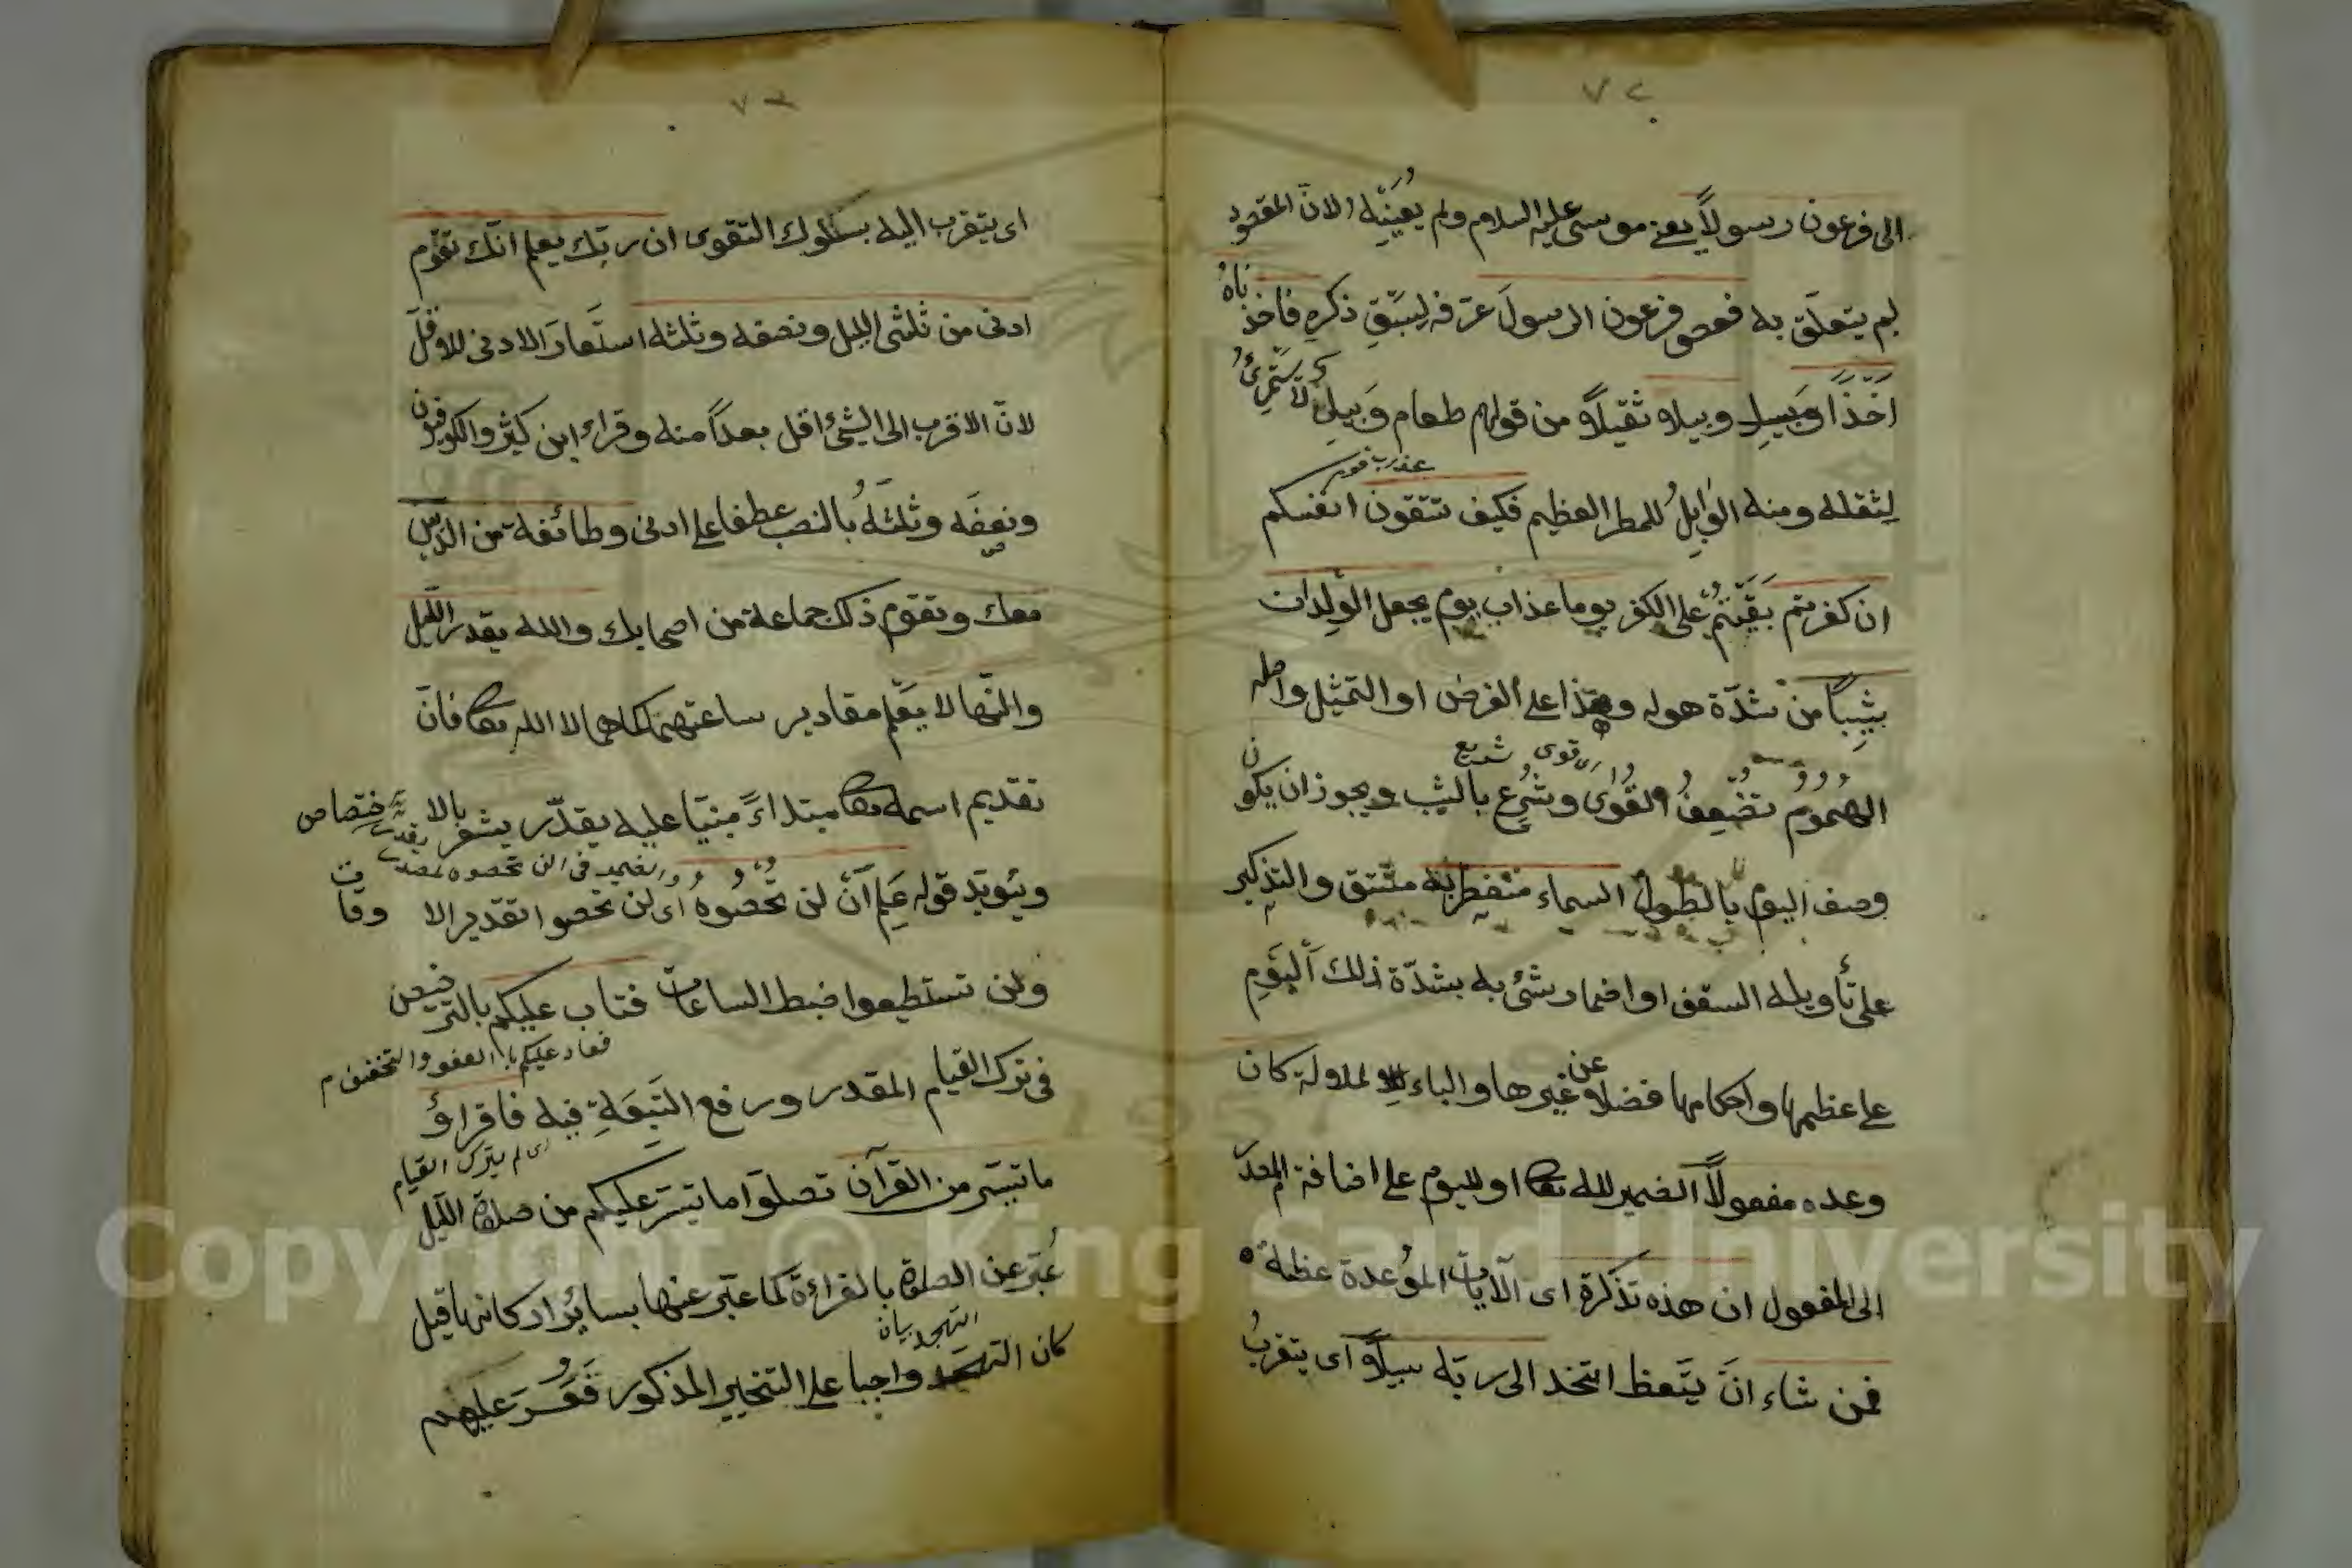 ٧٢
الى فرعون رسولاً يعنے موسى عليه السلام ولم يُعَيِّنْهُ لانّ المقصود
لم يتعلّق به فعصى فرعون الرسولَ عرّفه لِسَبْقِ ذكرِه فاخذناهُ
اَخْذًا وَبيلاً وبيلا ثقيلاً من قولهم طعام وَبيلٌ لا يُسْتَمْرَئُ
لِثقله ومنه الوَابِلُ للمطر العظيم فكيف تتقون انفسكم
عذاب يوم
ان كفرتم بَقَيْتُمْ على الكفر يوما عذاب يوم يجعل الوِلدان
شِيباً من شدّة هوله وهذا على الفرض او التمثيل واصله
اى قوى تسرع
الهُمُومُ تُضْعِفُ القُوٰى وتُسْرِعُ بالشيب ويجوز ان يكون
وصف اليوم بالطول السماء منفطر به منشق والتذكير
على تأويله السقف او اضمار شئ به بشدّة ذلك اَليَوْمِ
على عظمها واحكامها فضلا عن غيرها والباء للآلة كان
وعده مفعولاً الضمير لله تعالى او لليوم على اضافة المصدر
الى المفعول ان هذه تذكرة اى الآيات الموُعدة عظة
فمن شاء انَ يَتَعظ اتخذ الى ربّه سبيلاً اى يتقربُ
٧٣
اى يتقرب اليه بسلوك التقوى ان ربّك يعلم انّك تقوم
ادنى من ثلثى الليل ونصفه وثلثه استَعارَ الادنى للاقلّ
لانّ الاقرب الى الشئ اقل بعداً منه وقراء ابن كثير والكوفيون
ونصفَه وثلثَهُ بالنصب عطفا على ادنى وطائفة من الذين
معك وتقوم ذلك جماعة من اصحابك والله يقدر الليل
والنّهار لا يَعْلم مقادير ساعتهما كما هى الا الله تعالى فانّ
تقديم اسمه تعالى مبتداءً مبنيّا عليه يقدّر يشعر بالاختصاص
والضمير فى لن تحصوه لمصدر يقدر
ويئويّد قوله عَلِم اَنْ لن تُحْصُوهُ اى لن تحصوا تقدير الاوقات
ولن تستطيعوا ضبط الساعات فتاب عليكم بالترخيص
فعاد عليكم بالعفو والتخفيف م
فى ترك القيام المقدر ورفع التَبِعَةِ فيه فاقرؤا
اى لم يترك القيام
ما تيسّر من القرآن فصلّوا ما تيسّر عليكم من صلوة الّليل
عُبّر عن الصلوة بالقراءة كما عبّر عنها بسائر اركانها قيل
التهجد بيان
كان التهجد واجبا على التخيير المذكور فَعَسُرَ عليهم
Copyright © King Saud University
1957